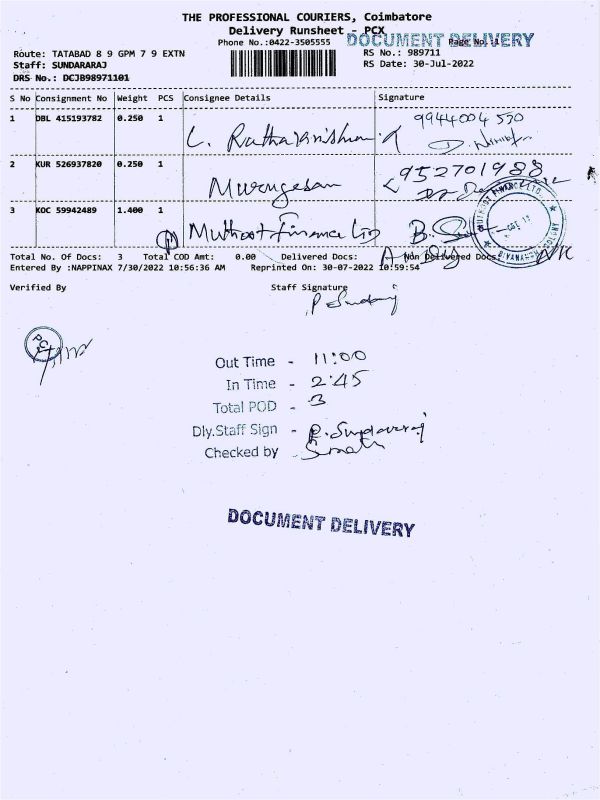 THE PROFESSIONAL COURIERS, Coimbatore
Delivery Runsheet - PCX
Phone No.:0422-3505555
DOCUMENT DELIVERY
Page No. :1
Route: TATABAD 8 9 GPM 7 9 EXTN
RS No.: 989711
Staff: SUNDARARAJ
RS Date: 30-Jul-2022
DRS No.: DCJB98971101
S No Consignment No Weight PCS Consignee Details Signature
1 DBL 415193782 0.250 1 9944004 550
2 KUR 526937820 0.250 1 Murugesan 952701988
3 KOC 59942489 1.400 1 Muthoot Finance Ltd
Total No. Of Docs: 3 Total COD Amt: 0.00 Delivered Docs: Non Delivered Docs:
Entered By :NAPPINAX 7/30/2022 10:56:36 AM Reprinted On: 30-07-2022 10:59:54
Verified By Staff Signature
Out Time - 11:00
In Time - 2:45
Total POD - 3
Dly.Staff Sign - P. Sundararaj
Checked by -
DOCUMENT DELIVERY